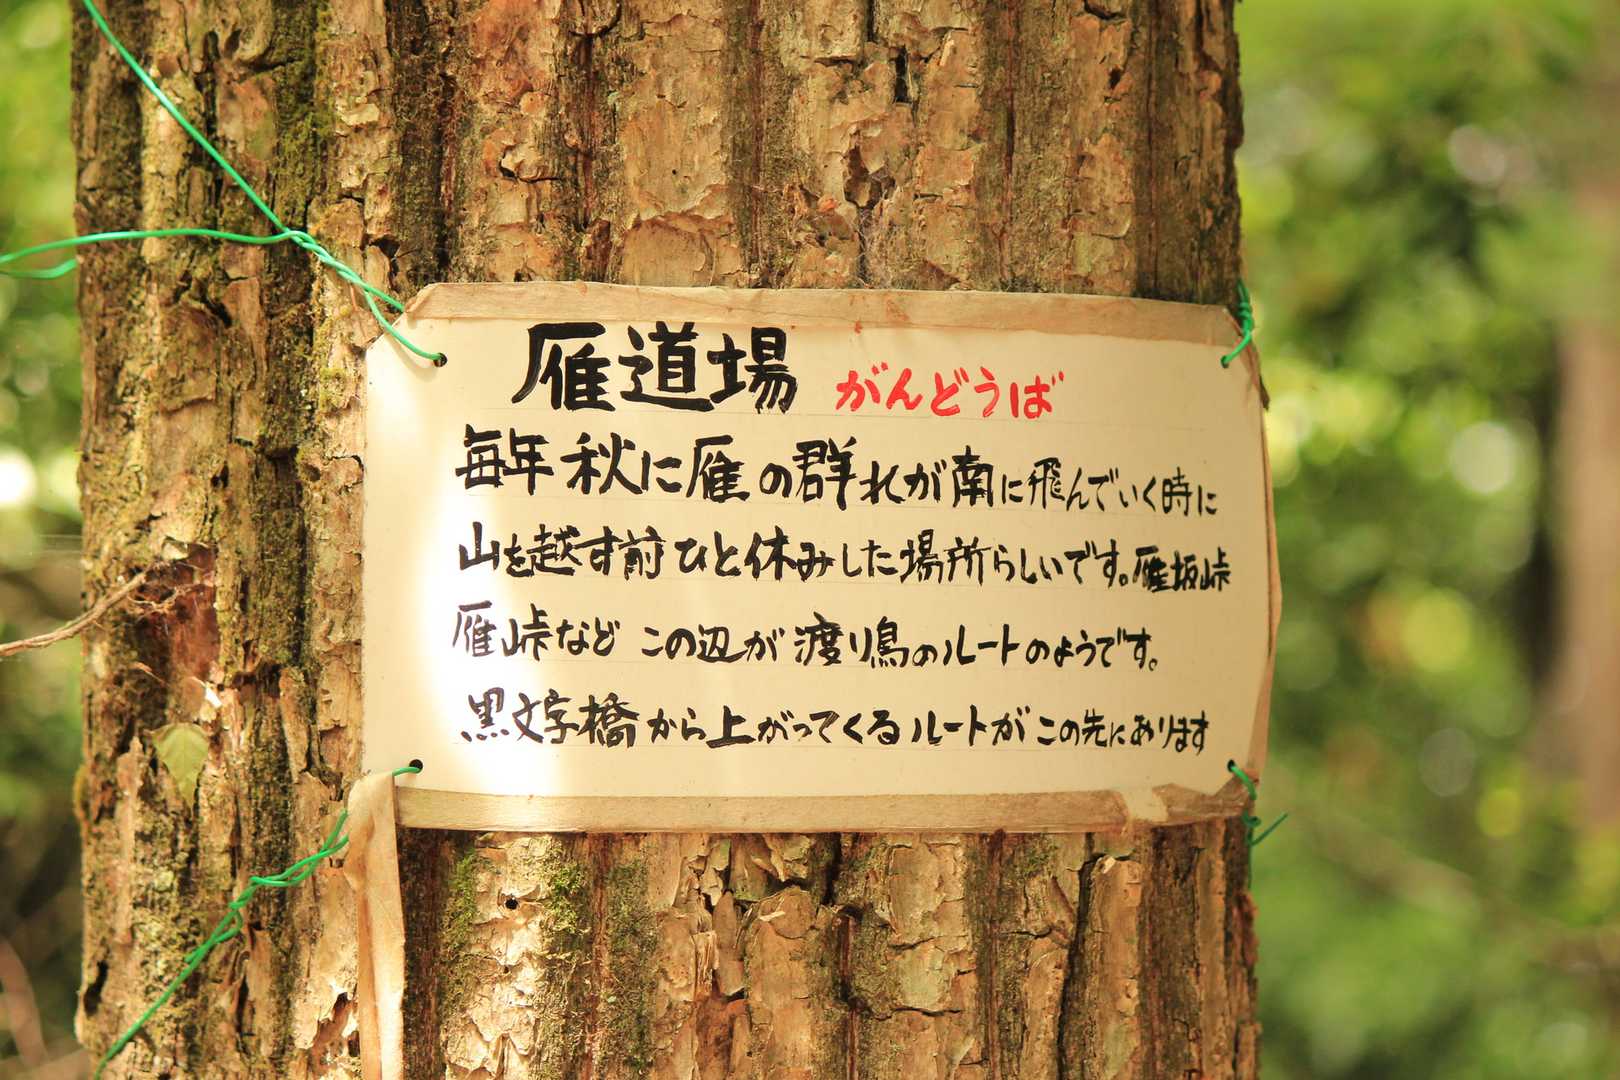 雁道場 がんどうば
毎年秋に雁の群れが南に飛んでいく時に
山を越す前ひと休みした場所らしいです。雁坂峠
雁峠など この辺が渡り鳥のルートのようです。
黒文字橋から上がってくるルートがこの先にあります